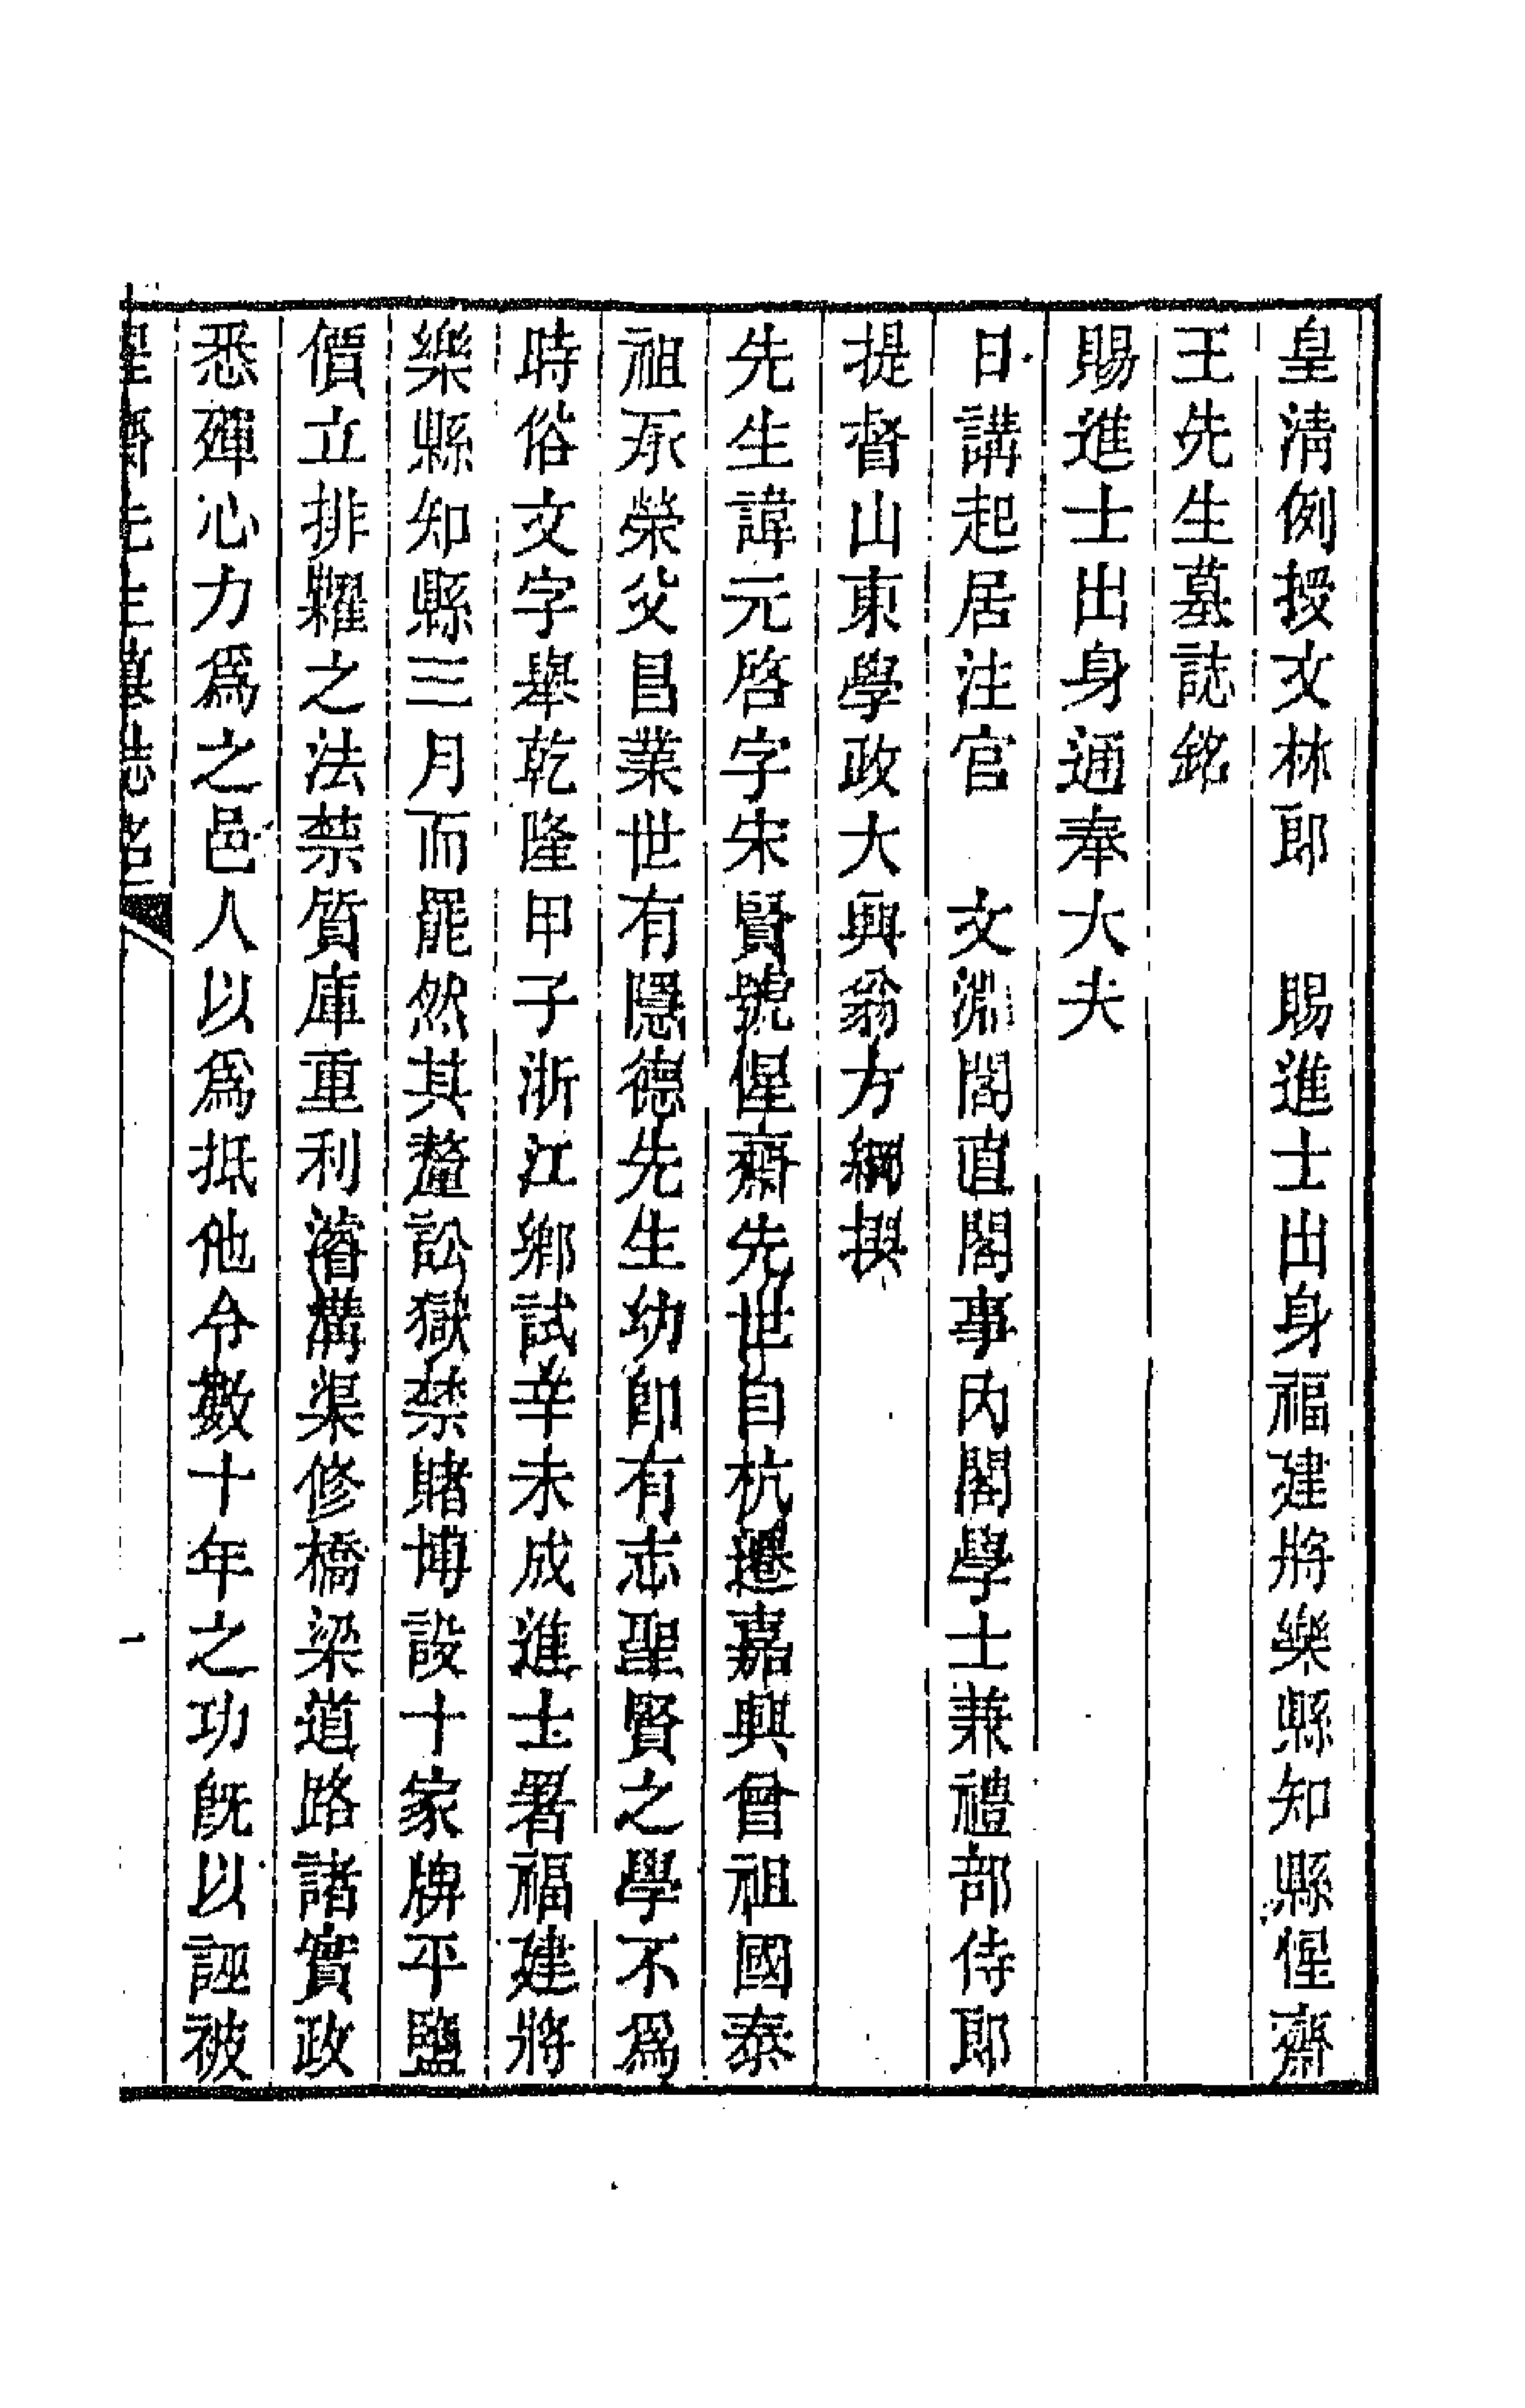 皇清例授文林郎　賜進士出身福建將樂縣知縣惺齋
王先生墓誌銘
賜進士出身通奉大夫
日講起居注官　文淵閣直閣事內閣學士兼禮部侍郎
提督山東學政大興翁方綱撰
先生諱元啓字宋賢號惺齋先世自杭遷嘉興曾祖國泰
祖承榮父昌業世有隱德先生幼卽有志聖賢之學不爲
時俗文字舉乾隆甲子浙江鄉試辛未成進士署福建將
樂縣知縣三月而罷然其釐訟獄禁賭博設十家牌平鹽
價立排糶之法禁質庫重利濬溝渠修橋梁道路諸實政
悉殫心力爲之邑人以爲抵他令數十年之功旣以誣被
惺齋先生墓誌銘　一